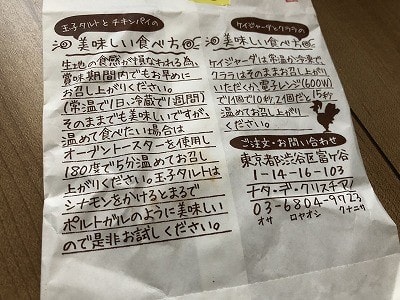 玉子タルトとチキンパイの
美味しい食べ方
生地の食感が損なわれる為、
賞味期間内でもお早めに
お召し上がりください。
(常温で1日、冷蔵で1週間)
そのままでも美味しいですが、
温めて食べたい場合は
オーブントースターを使用し
180度で5分温めてお召し
上がりください。玉子タルトは
シナモンをかけるとまるで
ポルトガルのように美味しい
ので是非お試しください。
ケイジャーダとクララの
美味しい食べ方
ケイジャーダは常温か冷凍で、
クララはそのままお召し上がり
いただくか電子レンジ(600W)
で1個で10秒、2個だと15秒
温めてお召し上がり
ください。
ご注文・お問い合わせ
東京都渋谷区富ヶ谷
1-14-16-103
ナタ・デ・クリスチアノ
03-6804-9723
オサ ロヤオシ クナニサ